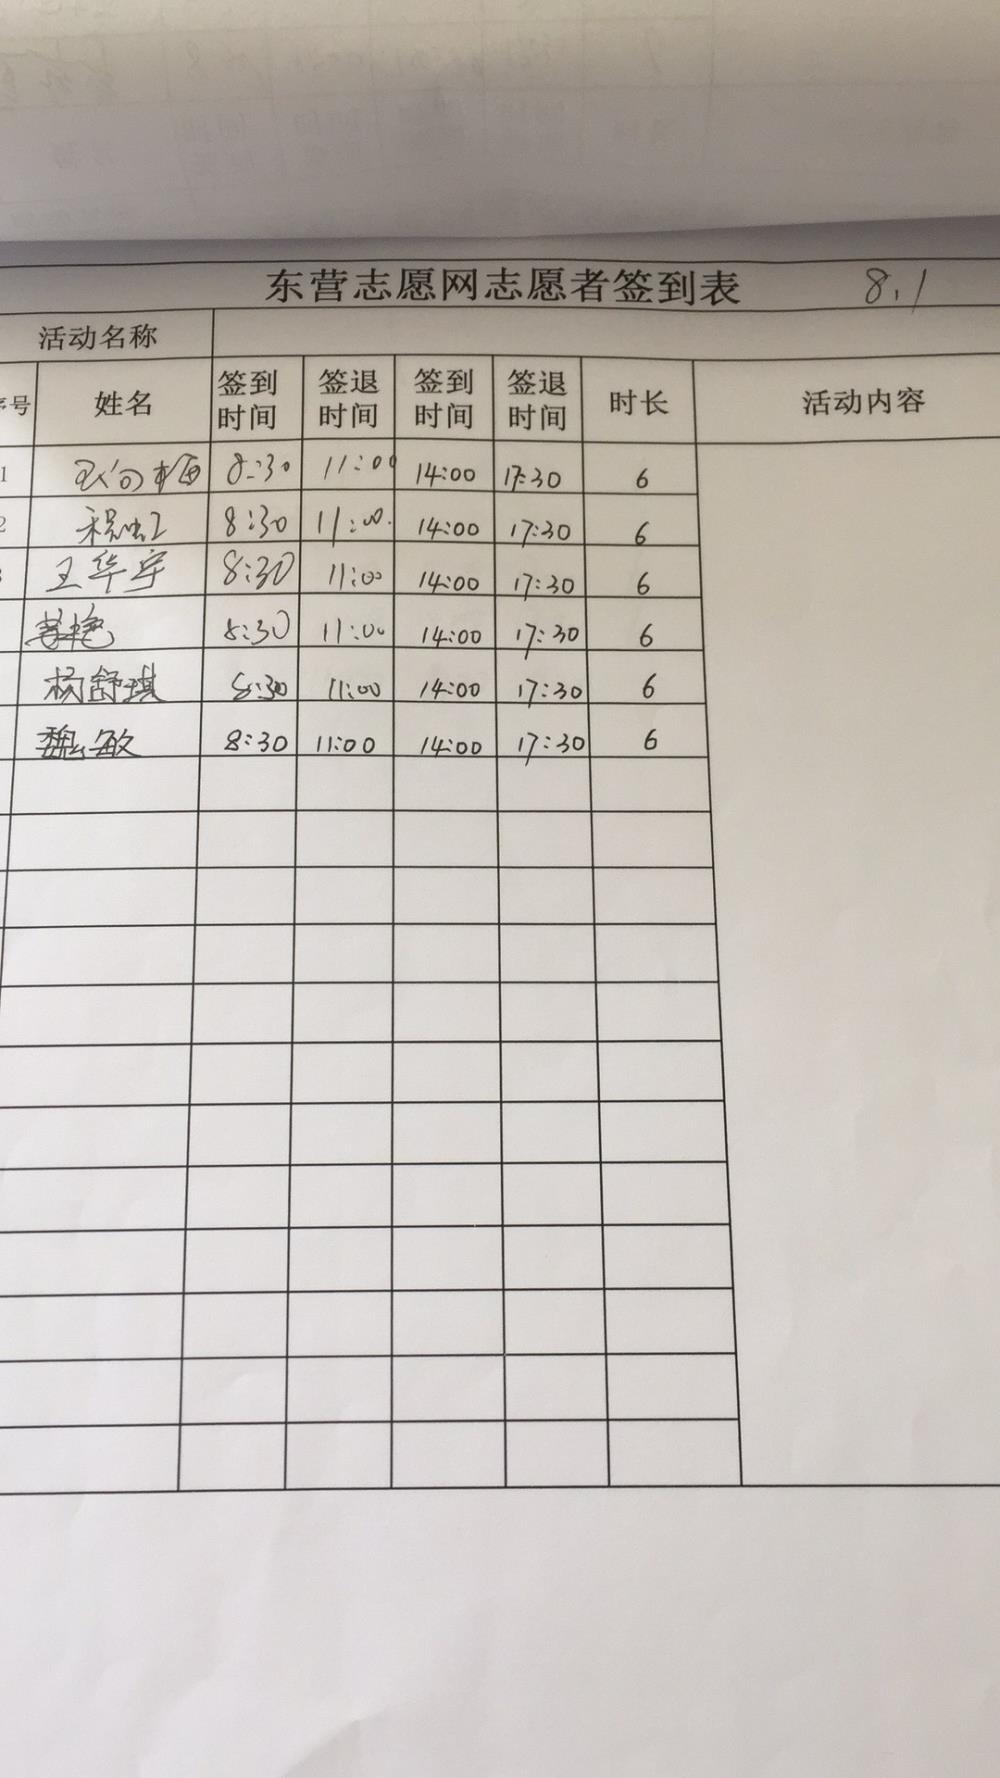 东营志愿网志愿者签到表 8.1
活动名称
序号 姓名 签到时间 签退时间 签到时间 签退时间 时长 活动内容
1 8:30 11:00 14:00 17:30 6
2 8:30 11:00. 14:00 17:30 6
王华宇 8:30 11:00 14:00 17:30 6
8:30 11:00 14:00 17:30 6
杨舒琪 8:30 11:00 14:00 17:30 6
魏敏 8:30 11:00 14:00 17:30 6